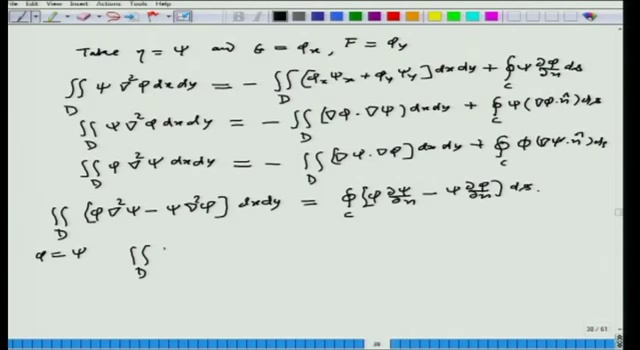 File Edit View Insert Actions Tools Help
Take η = ψ and G = φₓ, F = φᵧ
∬_D ψ ∇²φ dxdy = - ∬_D [φₓψₓ + φᵧψᵧ] dxdy + ∮_c ψ ∂φ/∂n ds
∬_D ψ ∇²φ dxdy = - ∬_D (∇φ · ∇ψ) dxdy + ∮_c ψ (∇φ · n̂) ds
∬_D φ ∇²ψ dxdy = - ∬_D [∇ψ · ∇φ] dxdy + ∮_c φ (∇ψ · n̂) ds
∬_D [φ∇²ψ - ψ∇²φ] dxdy = ∮_c [φ ∂ψ/∂n - ψ ∂φ/∂n] ds.
φ = ψ ∬_D
38 / 61
38